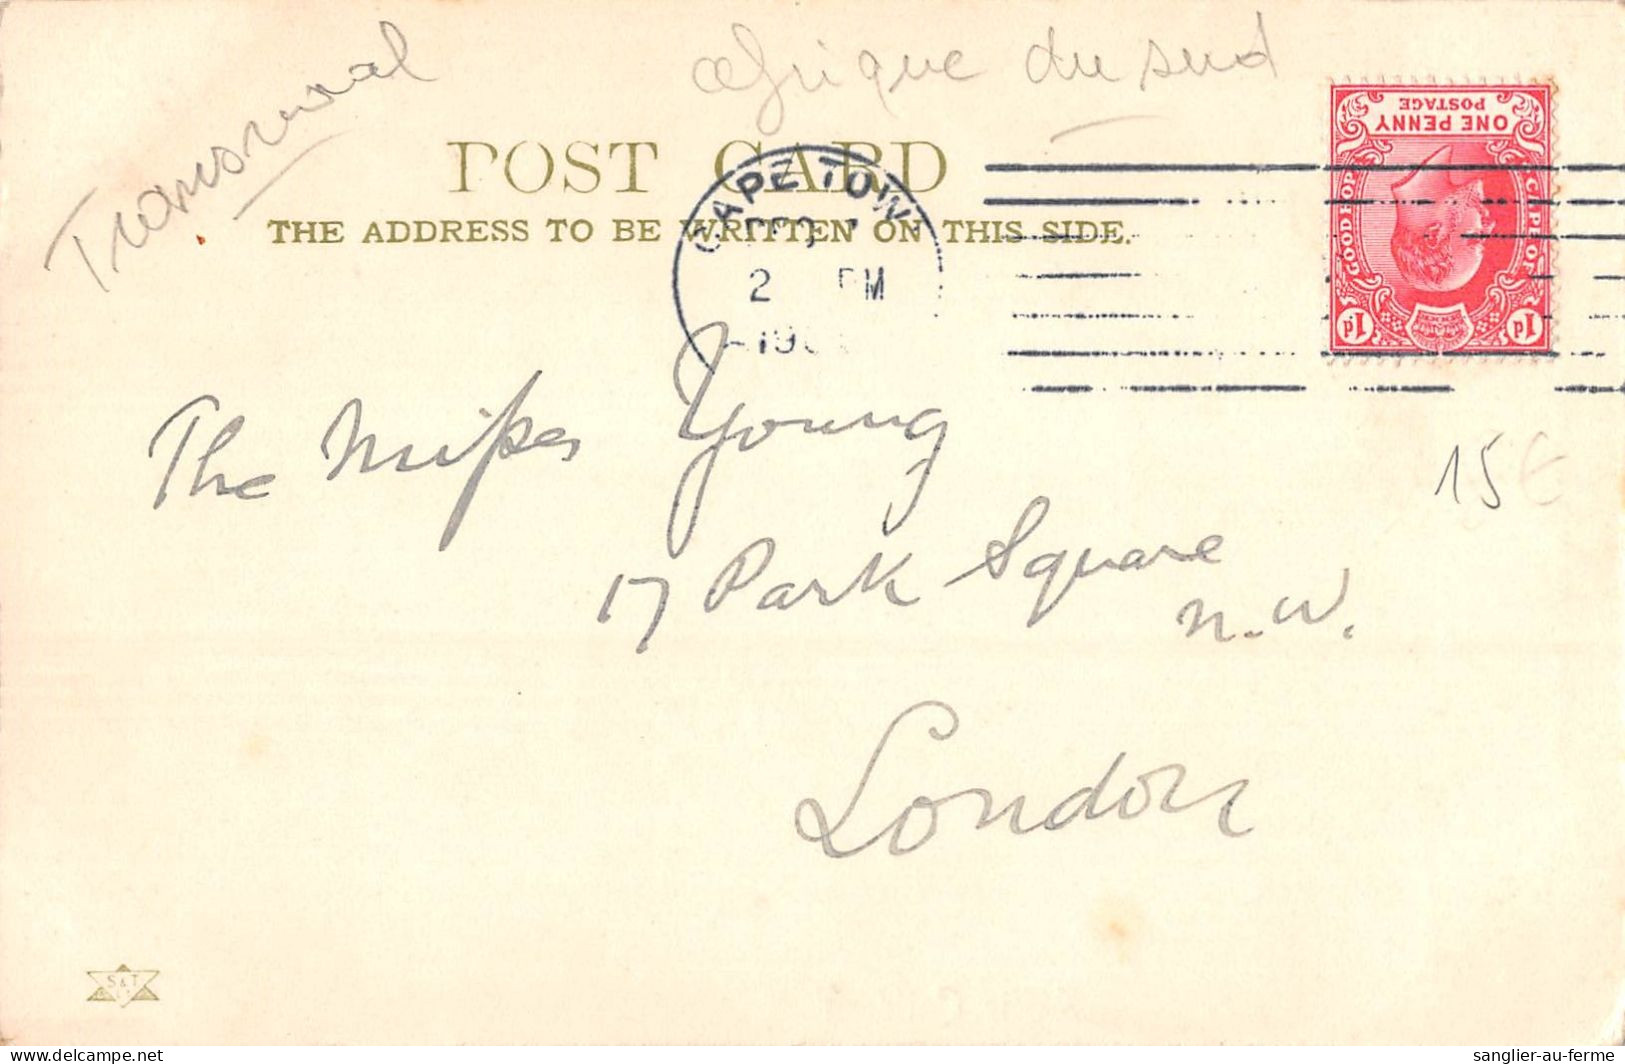 Transwaal
afrique du sud
POST CARD
THE ADDRESS TO BE WRITTEN ON THIS SIDE.
CAPE TOWN
2 PM
ONE PENNY
POSTAGE
CAPE OF
GOOD HOPE
1d 1d
The Misses Young
17 Park Square
N.W.
London
15 €
S & T
delcampe.net
sanglier-au-ferme